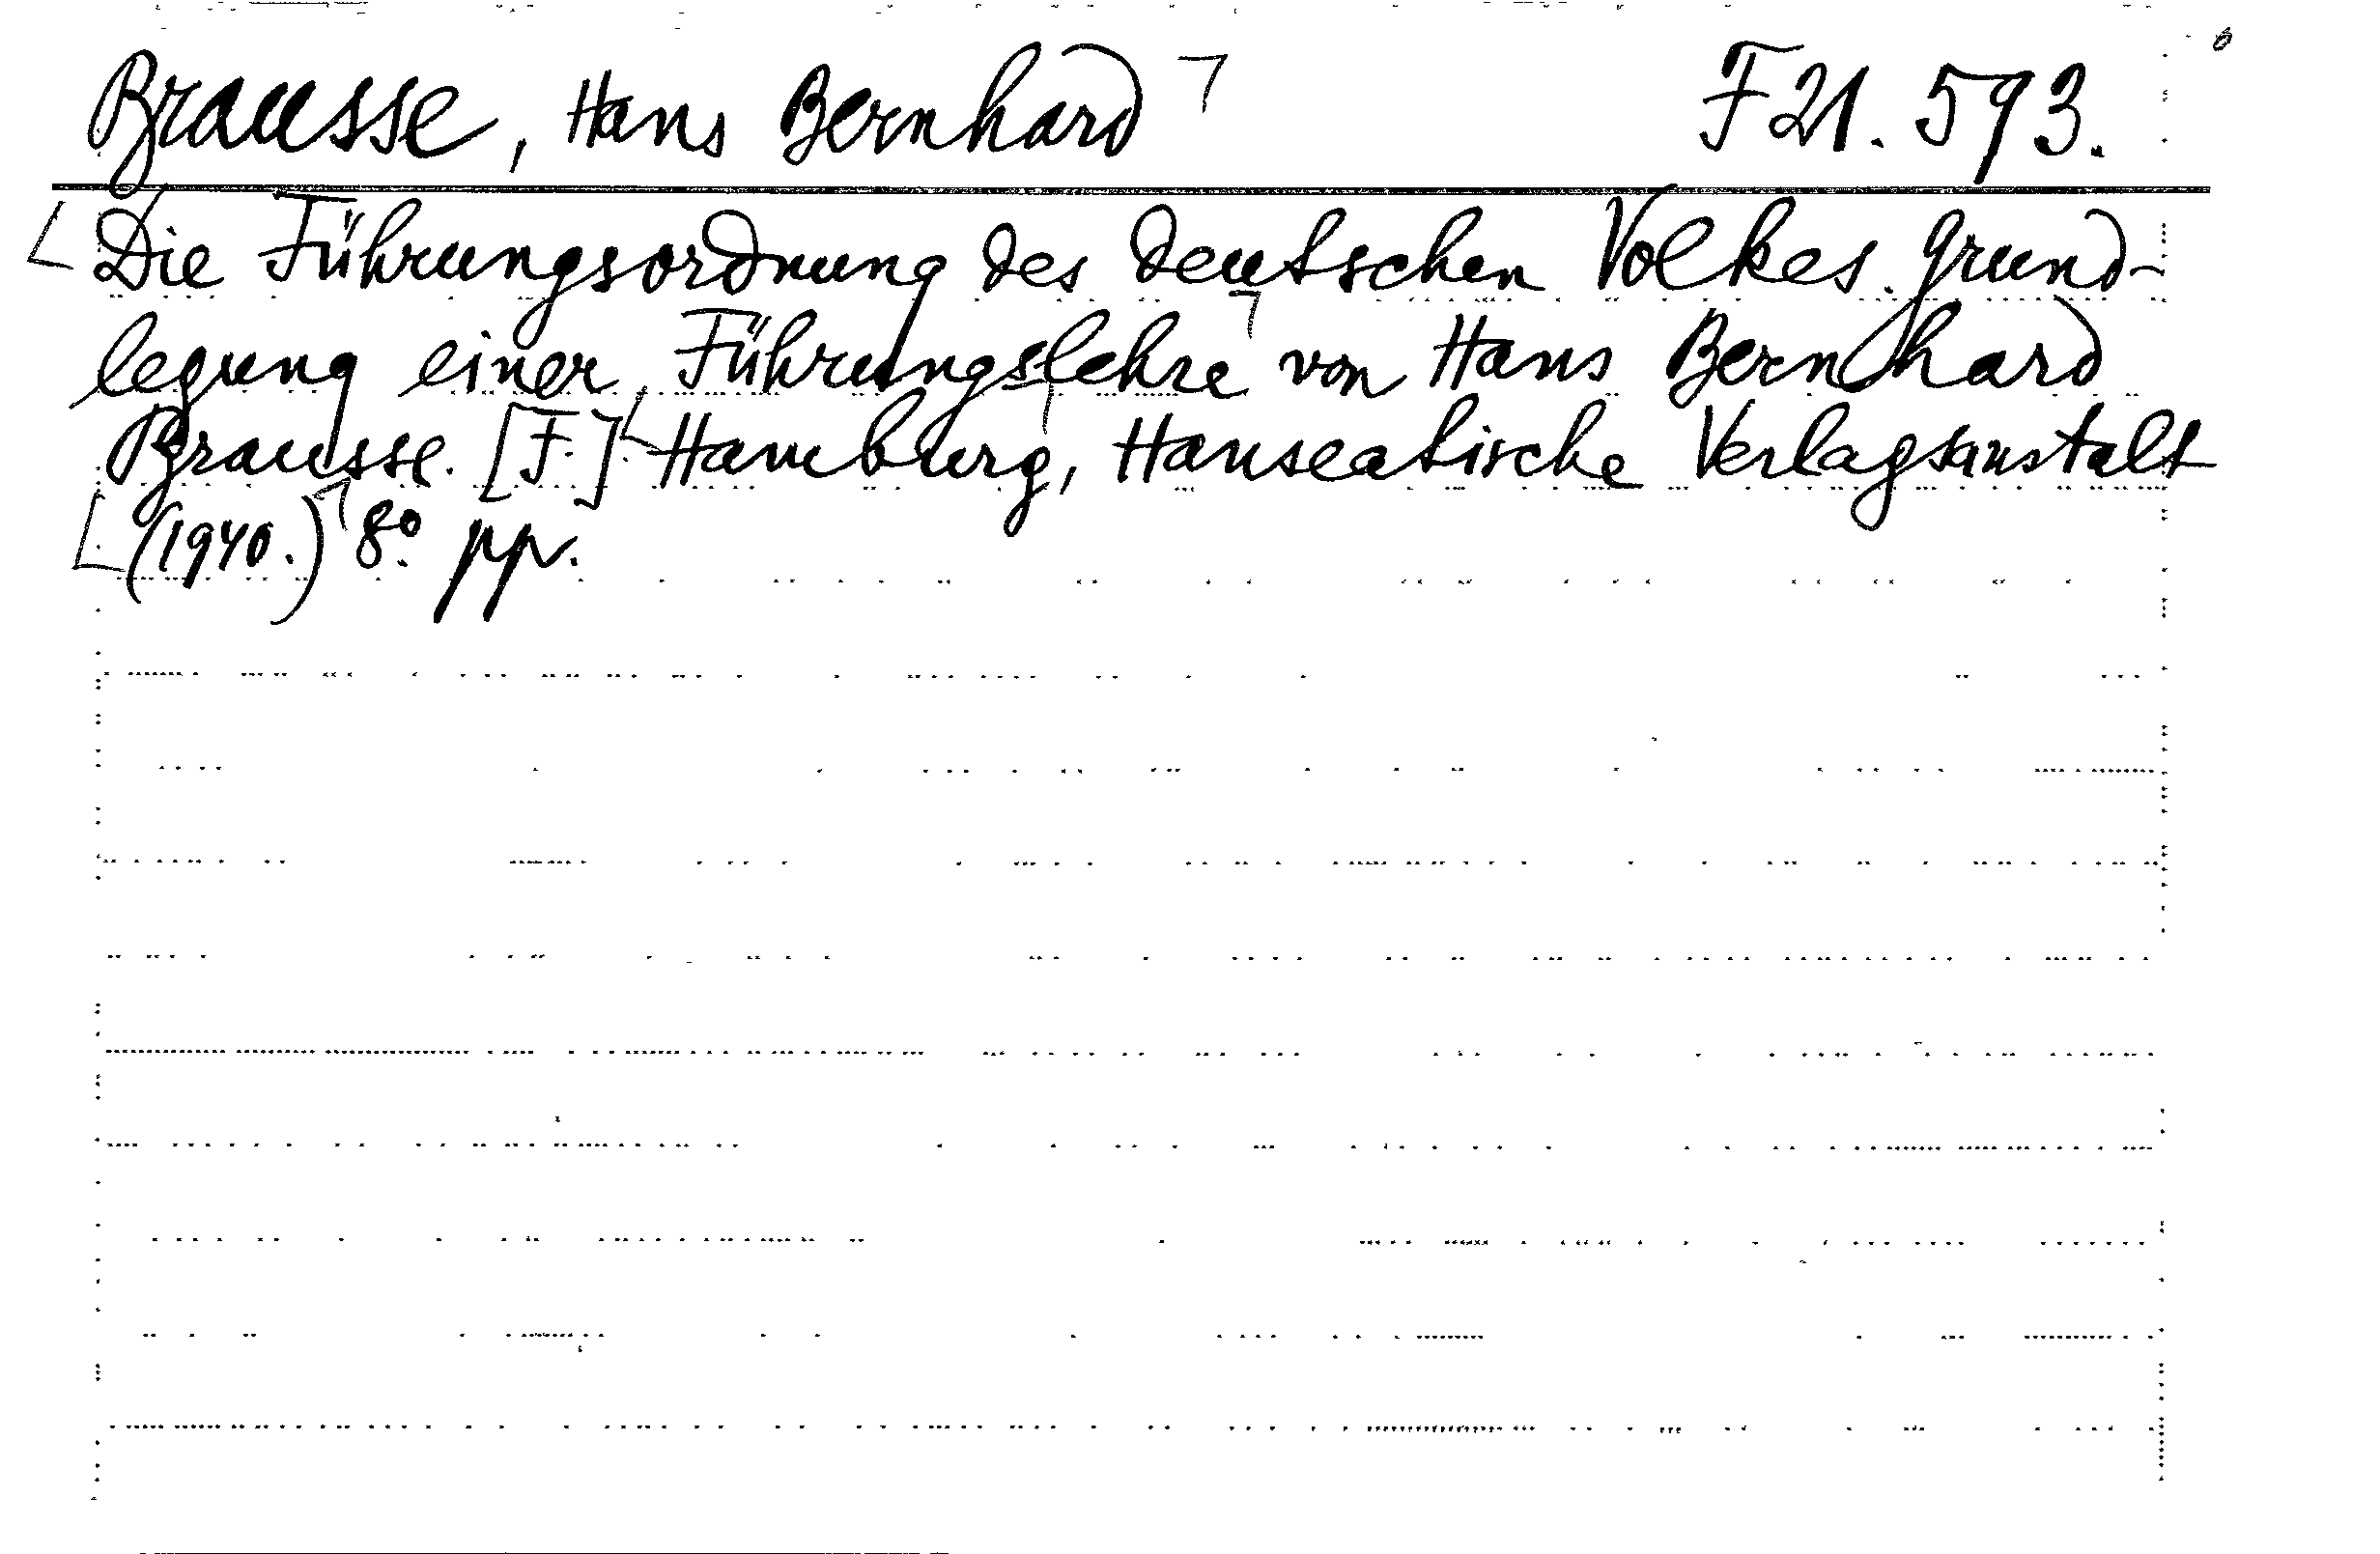 Brausse, Hans Bernhard F 21.593.
Die Führungsordnung des deutschen Volkes. Grund-
legung einer Führungslehre von Hans Bernhard
Brausse. [F.] Hamburg, Hanseatische Verlagsanstalt
(1940.) 8º. pp.